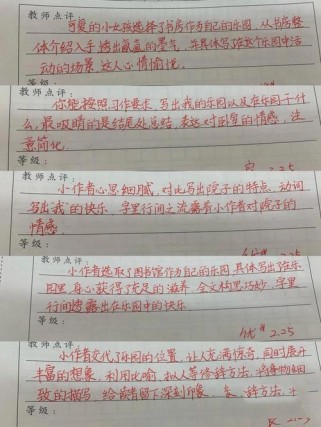 教师点评:
可爱的小女孩选择了书房作为自己的乐园,从书房整
体介绍入手 透出氤氲的墨气,并具体写了在这个乐园中活
动的场景,让人心情愉悦。
等级:
教师点评:
你能按照习作要求,写出我的乐园以及在乐园干什
么,最吸睛的是结尾处总结,表达对卧室的情感,注
意简化。
等级: 2.25
教师点评:
小作者心思细腻,对比写出院子的特点,动词
写出"我"的快乐,字里行间之流露着小作者对院子的
情感。
等级: 2.25
教师点评:
小作者选取了图书馆作为自己的乐园,具体写出了在乐
园里身心获得了充足的滋养,全文构思巧妙,字里
行间透露出在乐园中的快乐
等级: 优# 2.25
教师点评:
小作者交代了乐园的位置,让人充满惊奇,同时展开
丰富的想象,利用比喻、拟人等修辞方法,将事物细
致的描写,给读者留下深刻印象。
等级: